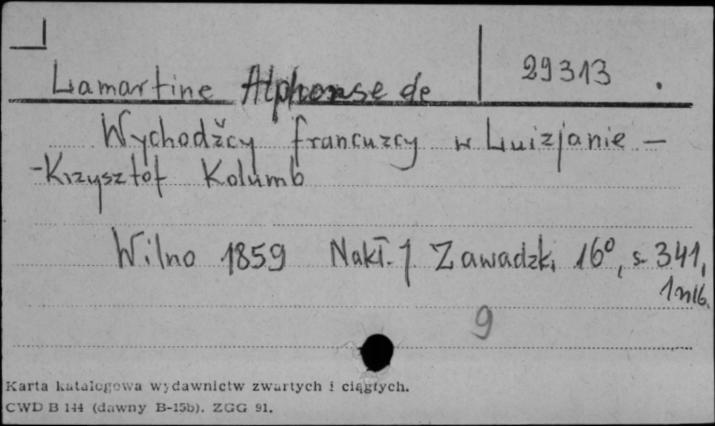 29313.
Lamartine Alphonse de
Wychodźcy francuzcy w Luizjanie -
-Krzysztof Kolumb
Wilno 1859 Nakł. J Zawadzki 16°, s. 341,
1 nlb.
9
Karta katalogowa wydawnictw zwartych i ciągłych.
CWD B 144 (dawny B-15b). ZGG 91.